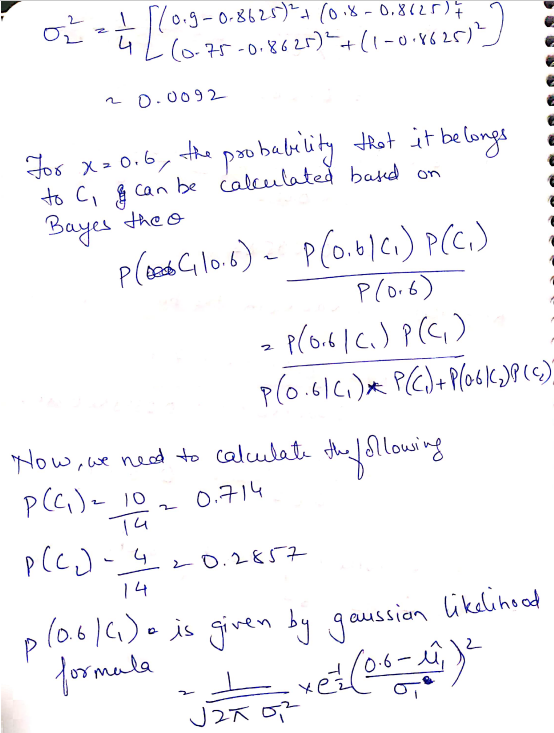 σ₂² = 1/4 [(0.9 - 0.8625)² + (0.8 - 0.8625)² +
(0.75 - 0.8625)² + (1 - 0.8625)²]
= 0.0092
For x = 0.6, the probability that it belongs
to C₁ can be calculated based on
Bayes theo
P(C₁|0.6) = P(0.6|C₁) P(C₁)
P(0.6)
= P(0.6|C₁) P(C₁)
P(0.6|C₁) * P(C₁) + P(0.6|C₂) P(C₂)
Now, we need to calculate the following
P(C₁) = 10/14 = 0.714
P(C₂) = 4/14 = 0.2857
P(0.6|C₁) is given by gaussian likelihood
formula
= 1/√2π σ₁² × e^-1/2 ((0.6 - μ̂₁)/σ₁)²